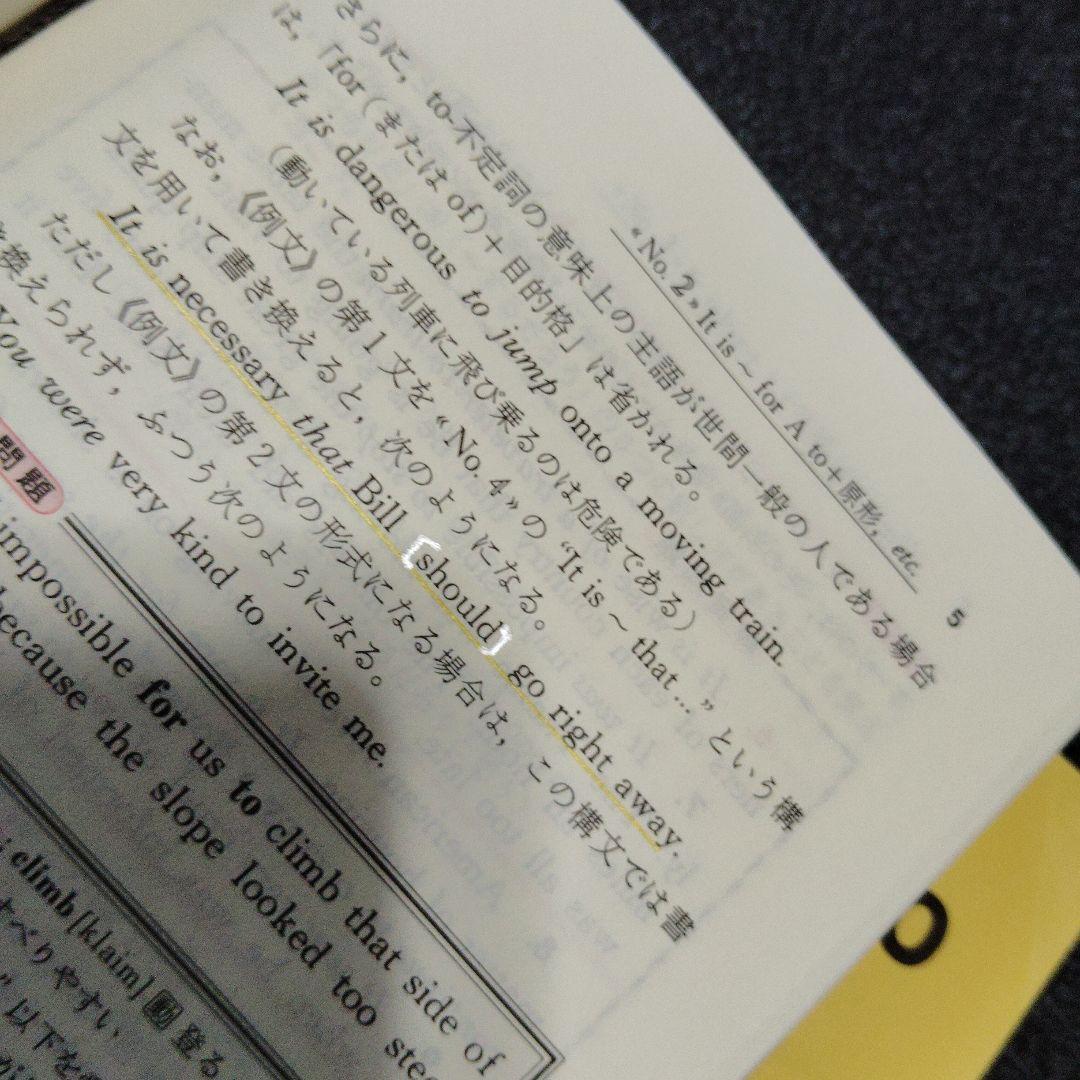 《No. 2》 It is ~ for A to+原形, etc.
5
さらに, to-不定詞の意味上の主語が世間一般の人である場合
は,「for (または of)+目的格」は省かれる。
It is dangerous to jump onto a moving train.
(動いている列車に飛び乗るのは危険である)
なお,《例文》の第1文を《No. 4》の “It is ~ that...” という構
文を用いて書き換えると, 次のようになる。
It is necessary that Bill [should] go right away.
ただし《例文》の第2文の形式になる場合は, この構文では書
換えられず, ふつう次のようになる。
You were very kind to invite me.
問題
impossible for us to climb that side of
because the slope looked too
climb [klaim] 動 登る
すべりやすい
以下を